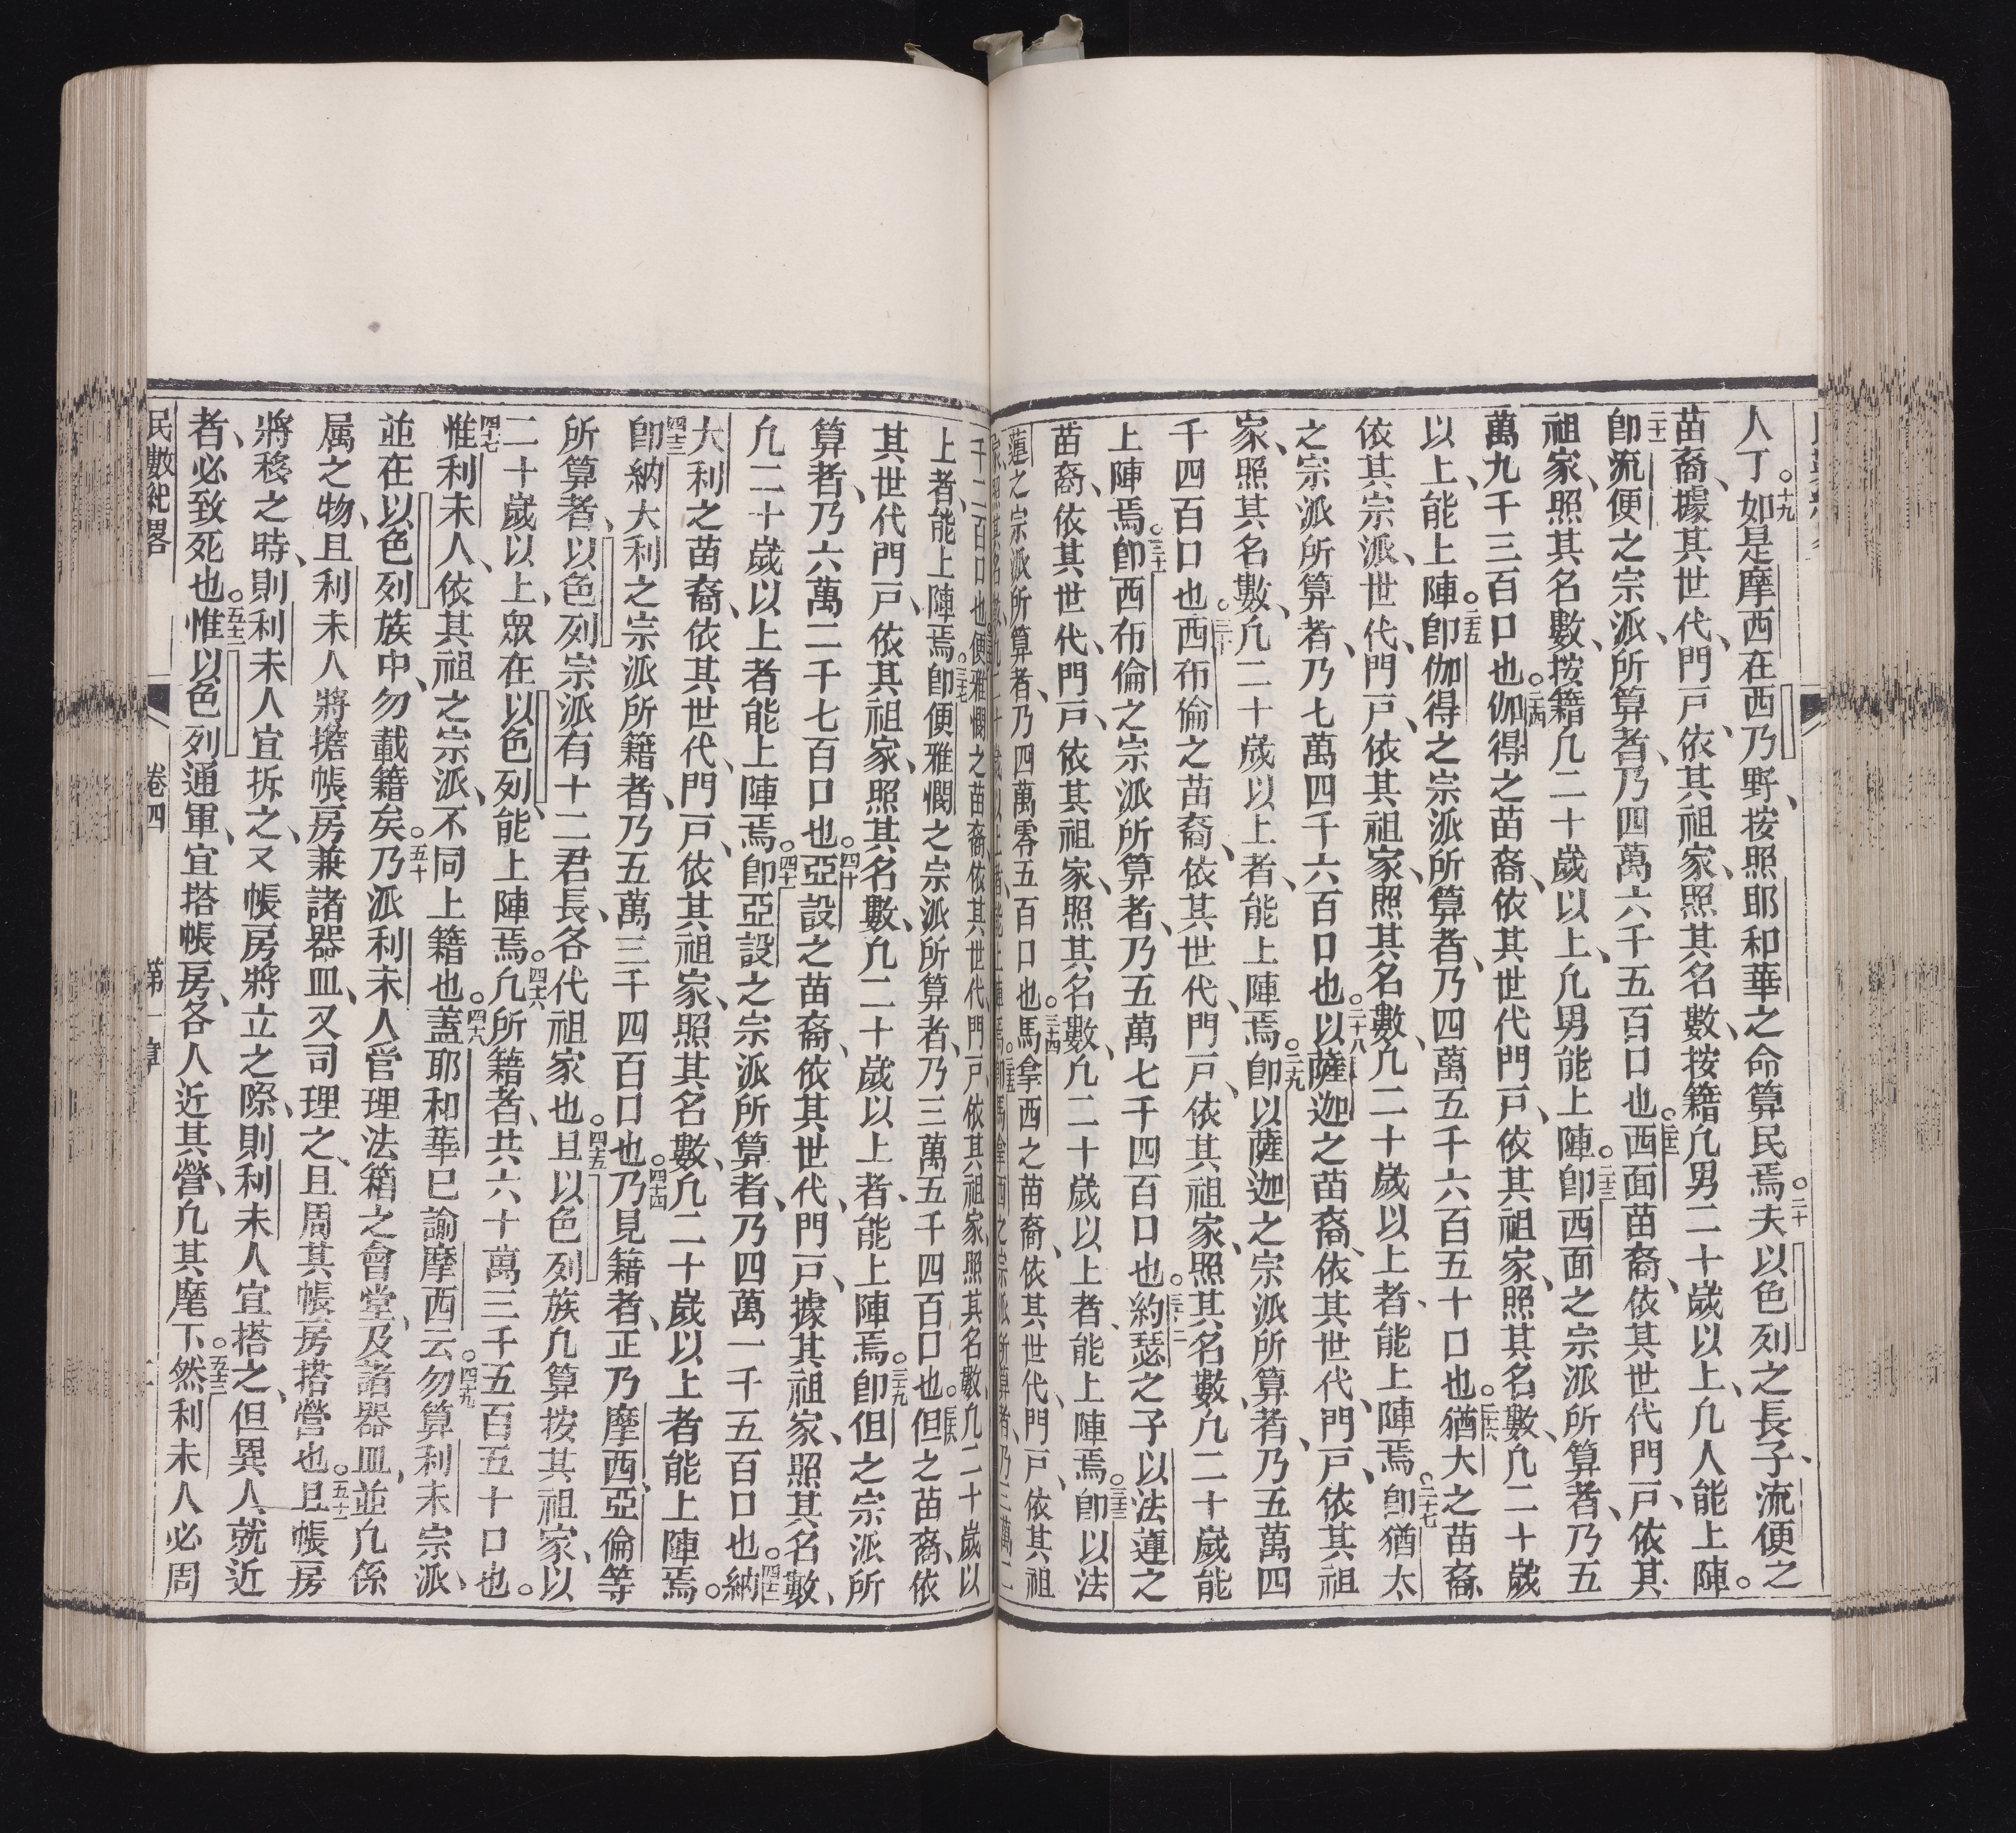 人丁。十九如是摩西在西乃野、按照耶和華之命算民焉。二十夫以色列之長子、流便之
苗裔、據其世代、門戶、依其祖家、照其名數、按籍凢男二十歲以上、凢人能上陣。
二十一卽流便之宗派、所算者、乃四萬六千五百口也。二十二西面苗裔、依其世代門戶、依其
祖家、照其名數、按籍凢二十歲以上、凢男能上陣。二十三卽西面之宗派所算者、乃五
萬九千三百口也。二十四伽得之苗裔、依其世代門戶、依其祖家、照其名數、凢二十歲
以上、能上陣。二十五卽伽得之宗派所算者、乃四萬五千六百五十口也。二十六猶大之苗裔、
依其宗派、世代、門戶、依其祖家、照其名數、凢二十歲以上者、能上陣焉。二十七卽猶太
之宗派所算者、乃七萬四千六百口也。二十八以薩迦之苗裔、依其世代、門戶、依其祖
家、照其名數、凢二十歲以上者、能上陣焉。二十九卽以薩迦之宗派所算者、乃五萬四
千四百口也。三十西布倫之苗裔、依其世代、門戶、依其祖家、照其名數、凢二十歲能
上陣焉。三十一卽西布倫之宗派所算者、乃五萬七千四百口也。三十二約瑟之子、以法蓮之
苗裔、依其世代、門戶、依其祖家、照其名數、凢二十歲以上者、能上陣焉。三十三卽以法
蓮之宗派所算者、乃四萬零五百口也。三十四馬拿西之苗裔、依其世代、門戶、依其祖
家、照其名數、凢二十歲以上者、能上陣焉。三十五卽馬拿西之宗派所算者、乃三萬二
千二百口也便雅憫之苗裔、依其世代、門戶、依其祖家、照其名數、凢二十歲以
上者、能上陣焉。三十七卽便雅憫之宗派所算者、乃三萬五千四百口也。三十八但之苗裔、依
其世代門戶、依其祖家、照其名數、凢二十歲以上者、能上陣焉。三十九卽但之宗派所
算者、乃六萬二千七百口也。四十亞設之苗裔、依其世代、門戶、據其祖家、照其名數、
凢二十歲以上者能上陣焉。四十一卽亞設之宗派所算者、乃四萬一千五百口也。四十二納
大利之苗裔、依其世代、門戶、依其祖家、照其名數、凢二十歲以上者能上陣焉。
四十三卽納大利之宗派所籍者、乃五萬三千四百口也。四十四乃見籍者、正乃摩西、亞倫等
所算者、以色列宗派有十二君長、各代祖家也。四十五且以色列族凢算按其祖家、以
二十歲以上、衆在以色列、能上陣焉。四十六凢所籍者、共六十萬三千五百五十口也。
四十七惟利未人、依其祖之宗派、不同上籍也。四十八蓋耶和華已諭摩西云。四十九勿算利未宗派、
並在以色列族中、勿載籍矣。五十乃派利未人管理法箱之會堂、及諸器皿、並凢係
属之物、且利未人將擔帳房兼諸器皿、又司理之、且周其帳房搭營也。五十一且帳房
將移之時、則利未人宜拆之、又帳房將立之際、則利未人宜搭之、但異人、就近
者、必致死也。五十二惟以色列通軍、宜搭帳房、各人近其營、凢其麾下。五十三然利未人必周
民數紀畧　卷四　第一章　二